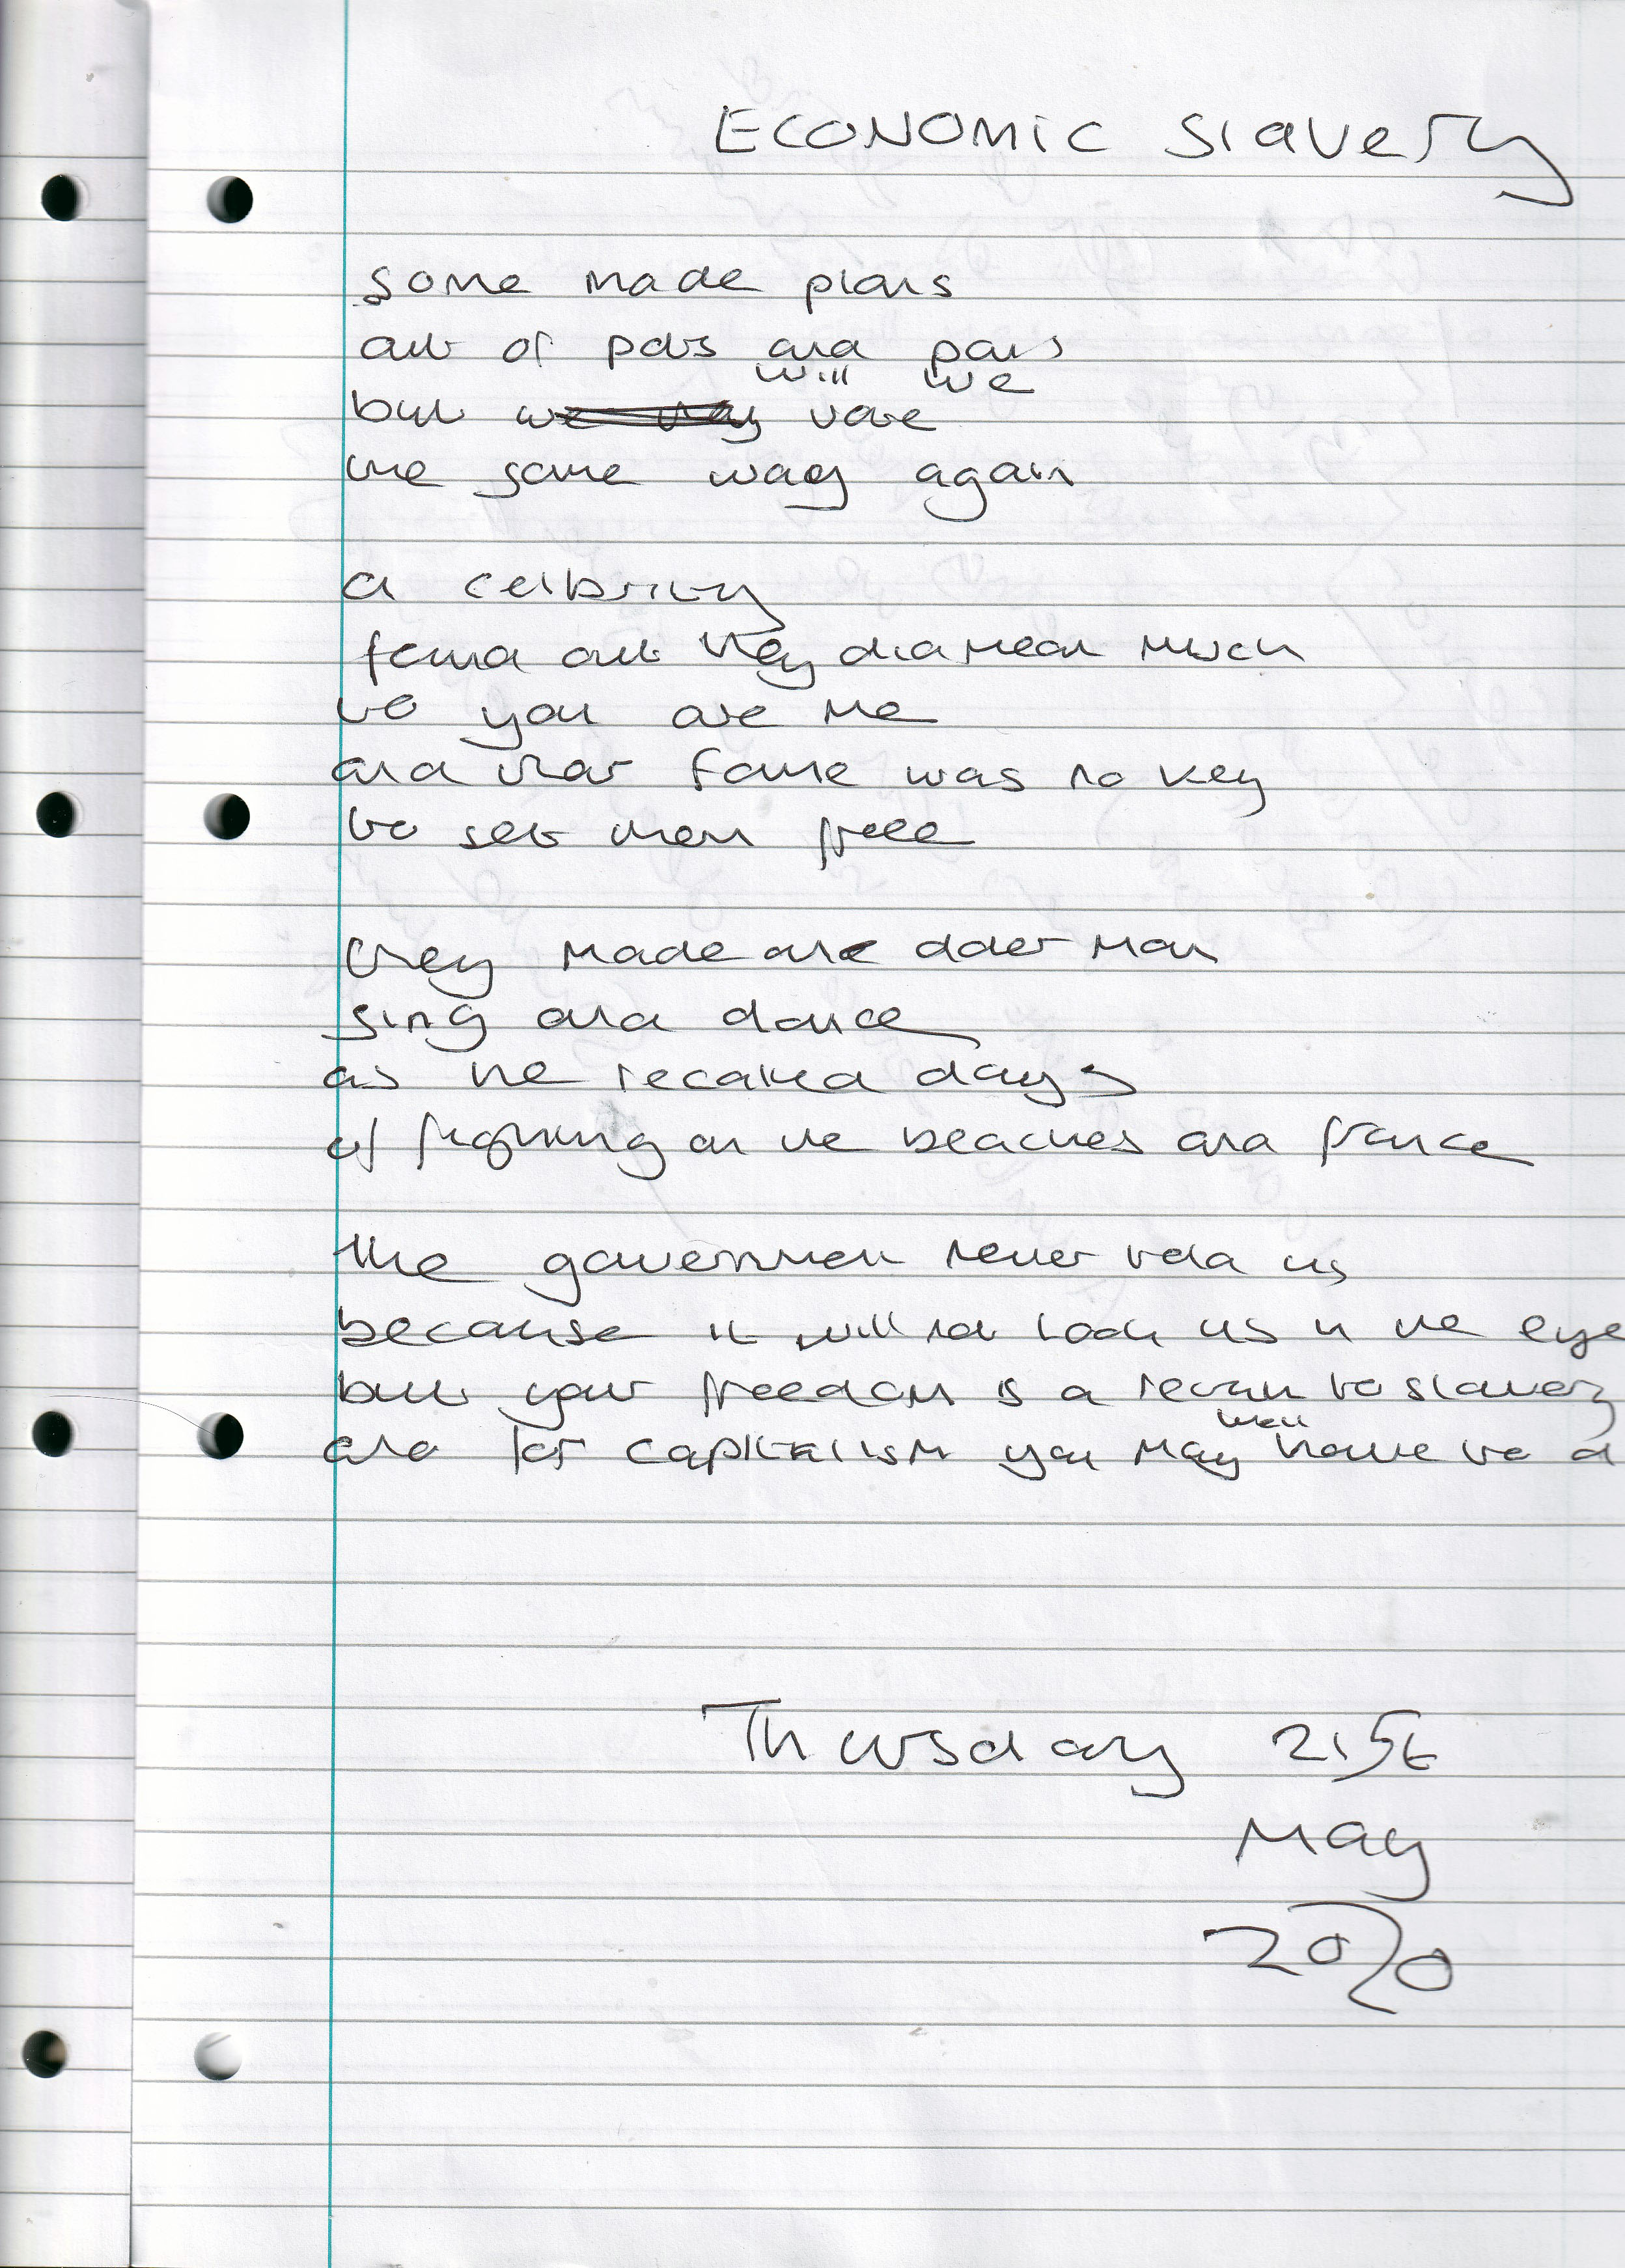 ECONOMIC Slavery
some made plans
out of pots and pans
but will we vote
the same way again
a celbrity
found out they didn mean much
to you are me
and that fame was no key
to set them free
they made one older man
sing and dance
as he recalled days
of fighting on the beaches and france
the government never told us
because it will not look us in the eye
but your freedom is a return to slavery
and for capitalism you may well have to d
Thursday 21st
May
2020